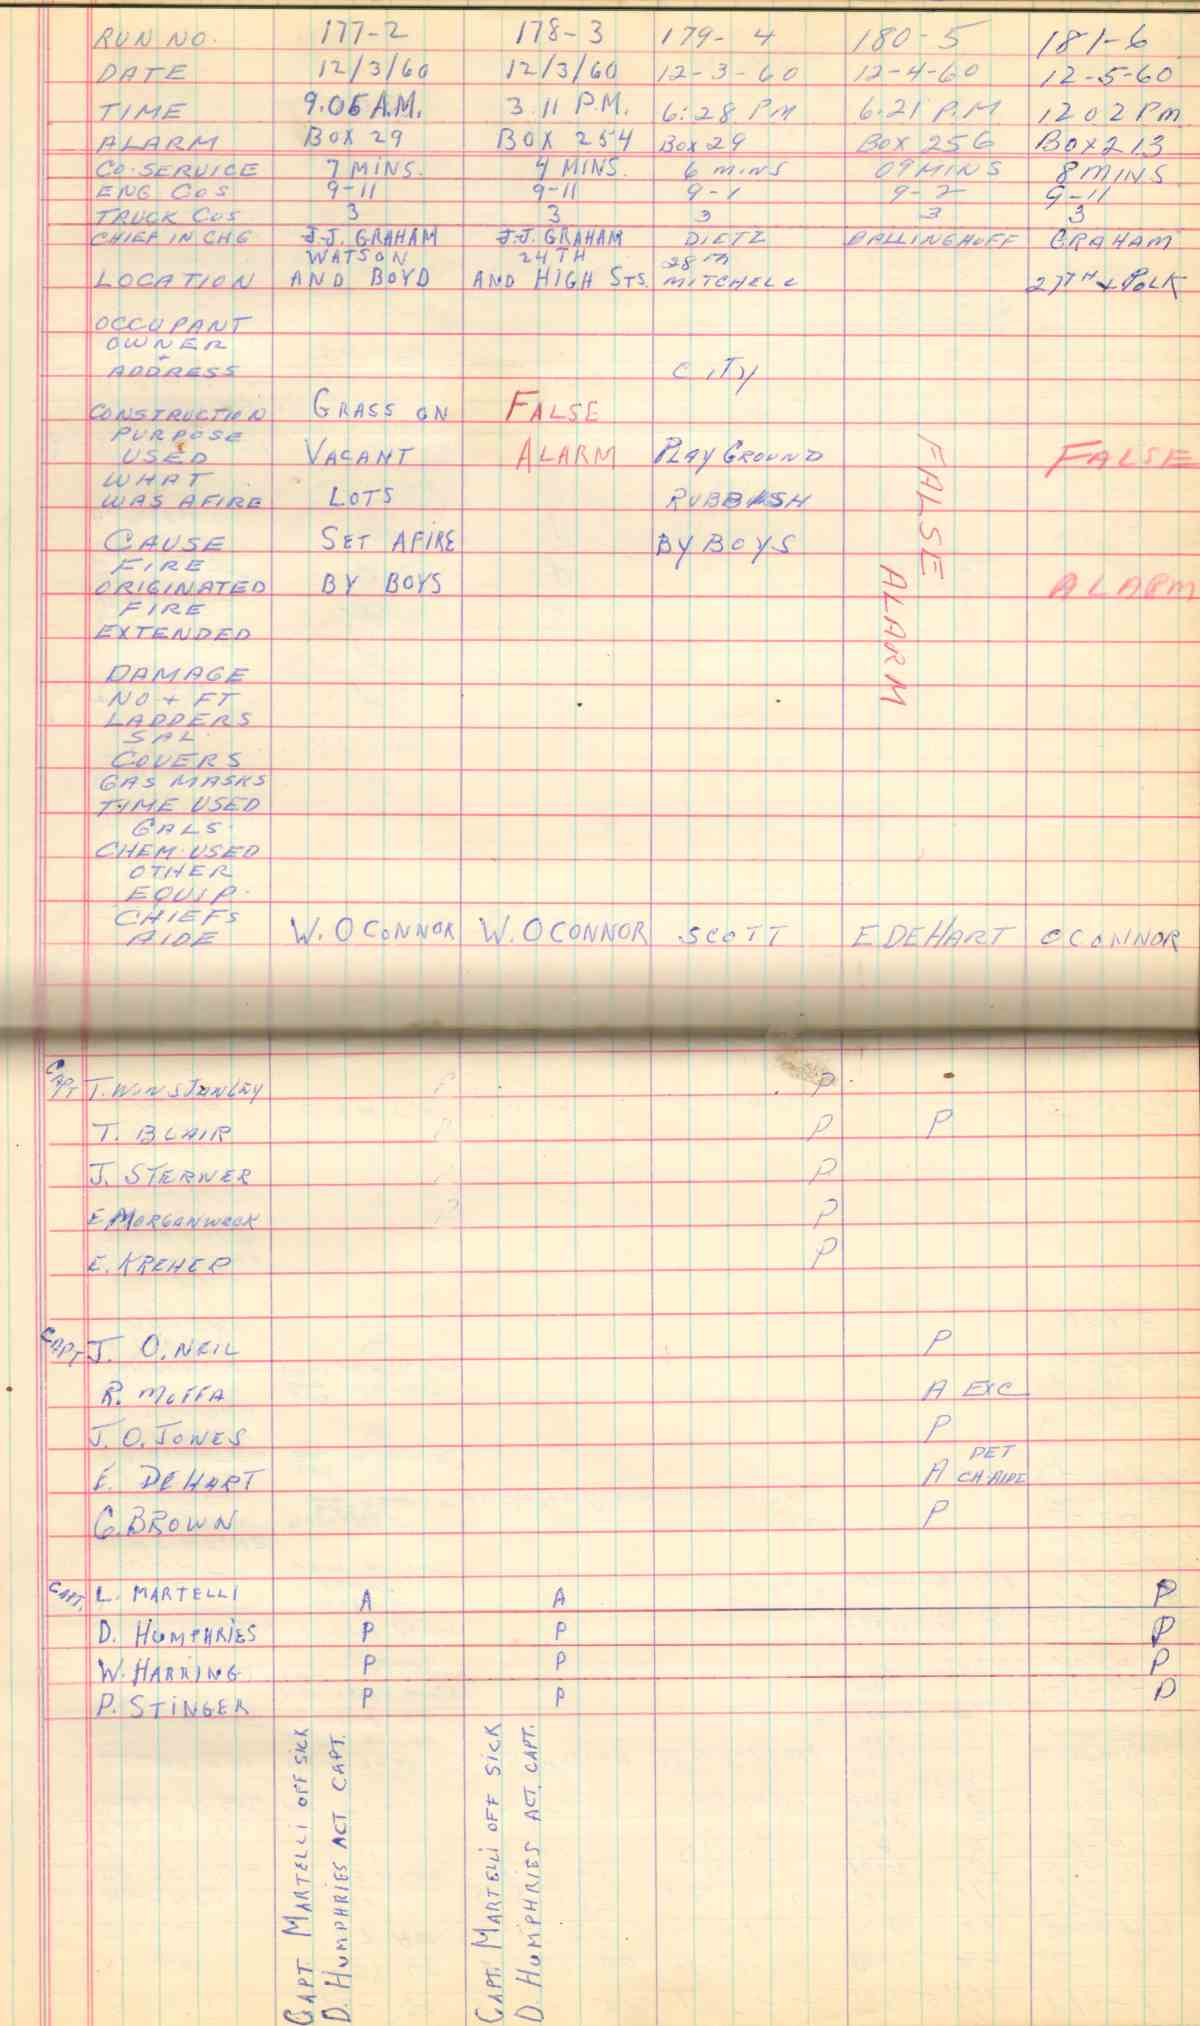 RUN NO. 177-2 178-3 179-4 180-5 181-6
DATE 12/3/60 12/3/60 12-3-60 12-4-60 12-5-60
TIME 9.05 A.M. 3.11 P.M. 6:28 PM 6:21 P.M 1202 PM
ALARM BOX 29 BOX 254 BOX 29 BOX 256 BOX 213
CO. SERVICE 7 MINS. 4 MINS. 6 MINS 09 MINS 8 MINS
ENG COS 9-11 9-11 9-1 9-2 9-11
TRUCK COS 3 3 3 3 3
CHIEF IN CHG J.J. GRAHAM J.J. GRAHAM DIETZ BALLINGHOFF GRAHAM
WATSON 24TH 28TH
LOCATION AND BOYD AND HIGH STS. MITCHELL 27TH + POLK
OCCUPANT
OWNER
+
ADDRESS CITY
CONSTRUCTION GRASS ON FALSE
PURPOSE
USED VACANT ALARM PLAYGROUND FALSE
WHAT
WAS AFIRE LOTS RUBBISH
FALSE ALARM
CAUSE SET AFIRE BY BOYS
FIRE
ORIGINATED BY BOYS ALARM
FIRE
EXTENDED
DAMAGE
NO + FT
LADDERS
SAL.
COVERS
GAS MASKS
TIME USED
GALS.
CHEM. USED
OTHER
EQUIP.
CHIEFS
AIDE W. OCONNOR W. OCONNOR SCOTT E DEHART OCONNOR
CAPT T. WINSTANLEY P P
T. BLAIR P P P
J. STERNER P
E MORGANWECK P P
E. KREHER P
CAPT J. O.NEIL P
R. MOFFA A EXC
J. O. JONES P
DET
E. DEHART A CH.AIDE
G. BROWN P
CAPT. L. MARTELLI A A P
D. HUMPHRIES P P P
W. HARRING P P P
P. STINGER P P P
CAPT MARTELLI OFF SICK
D. HUMPHRIES ACT CAPT.
CAPT. MARTELLI OFF SICK
D. HUMPHRIES ACT. CAPT.